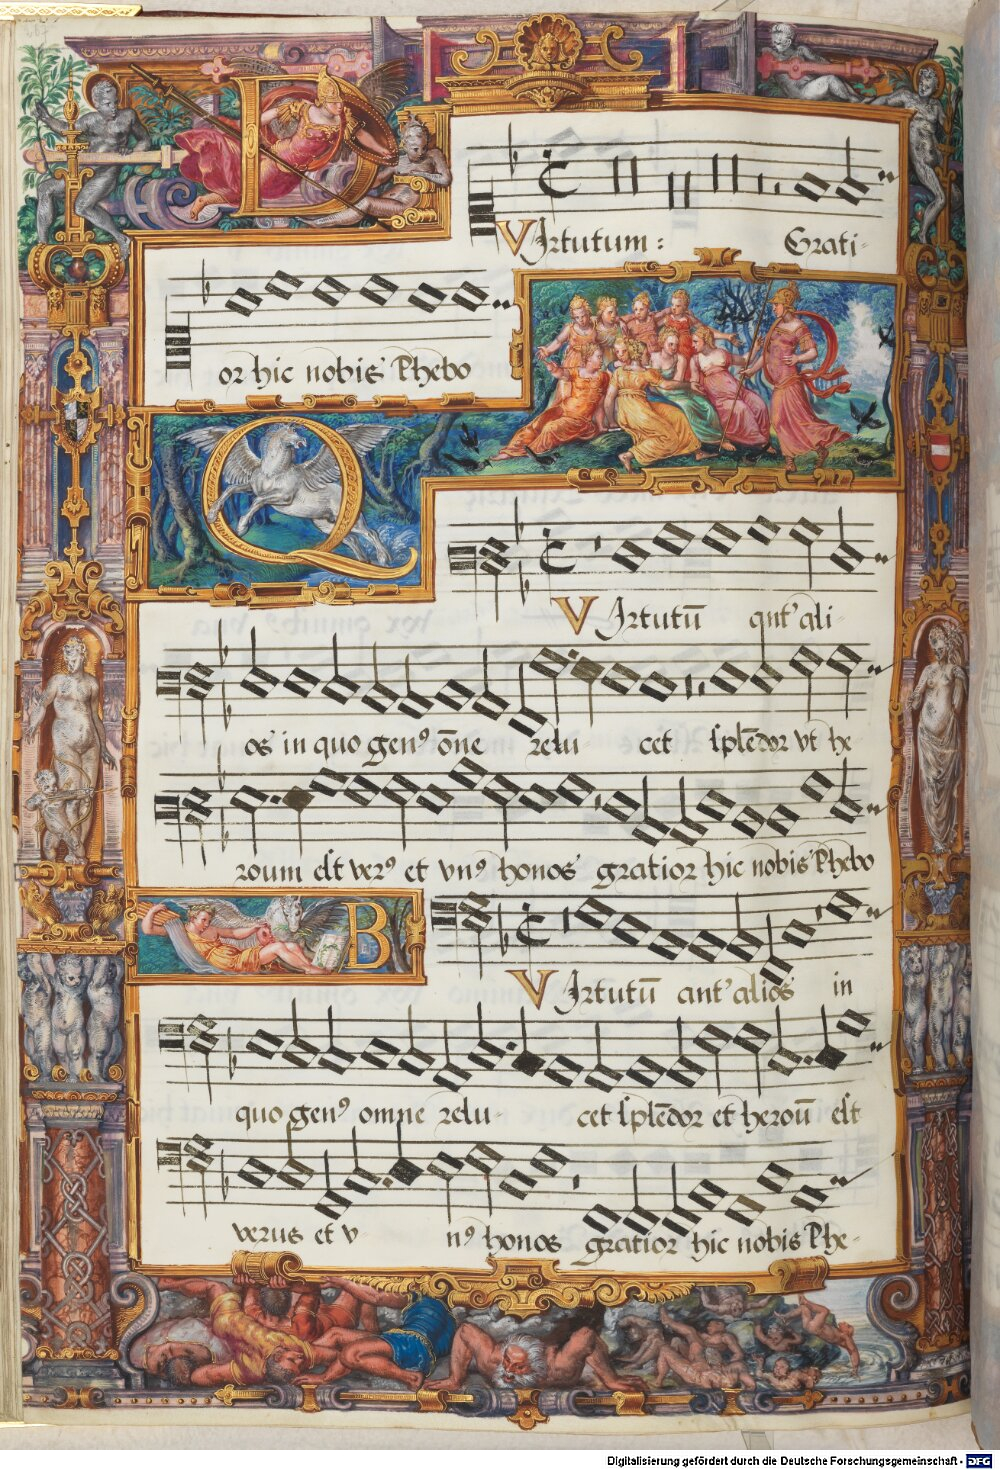 D
VIrtutum: Grati-
or hic nobis Phebo
Q
VIrtutū ant' ali-
os in quo genꝰ ōne relu- cet splēdor vt he
roum est verꝰ et vnꝰ honos gratior hic nobis Phebo
B
VIrtutū ant' alios in
quo genꝰ omne relu- cet splēdor et heroū est
verus et v- nꝰ honos gratior hic nobis Phe-
Digitalisierung gefördert durch die Deutsche Forschungsgemeinschaft - DFG